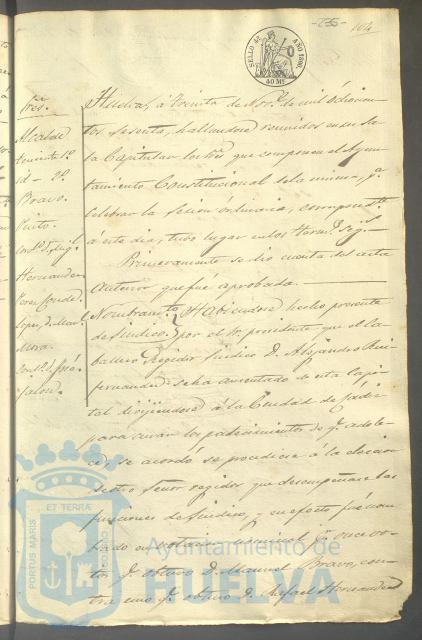 -255-
104
SELLO 4º AÑO 1860.
40 Ms
Sres.
Alcalde
teniente 1º
id - 2º
Bravo.
Pinto.
Hernandez
Mora.
Huelva, á treinta de de mil ochocien-
tos sesenta, hallandose reunidos en su Sa-
la Capitular los Sres que componen el Ayun-
tamiento Constitucional de la misma, pª
celebrar la sesion ordinaria, correspondte
á este dia, tuvo lugar en los
Primeramente se dio cuenta del acta
anterior que fué aprobada.
Nombramto Habiendose hecho presente
de Sindico. por el Sr presidente que el Ca-
ballero Regidor Sindico D. Alejandro
Fernandez se ha ausentado de esta Capi-
tal dirijiendose á la Ciudad de Cádiz
para curar los padecimientos de q. adole-
ce, se acordó se procediera á la eleccion
de otro Señor regidor que desempeñase las
funciones de Sindico, y en efecto fué nom-
brado en votacion nominal pr once vo-
tos q. obtuvo D. Manuel Bravo, con-
tra uno q. obtuvo D. Rafael Hernandez
PORTUS MARIS ET TERRÆ CUSTODIA
Ayuntamiento de
HUELVA